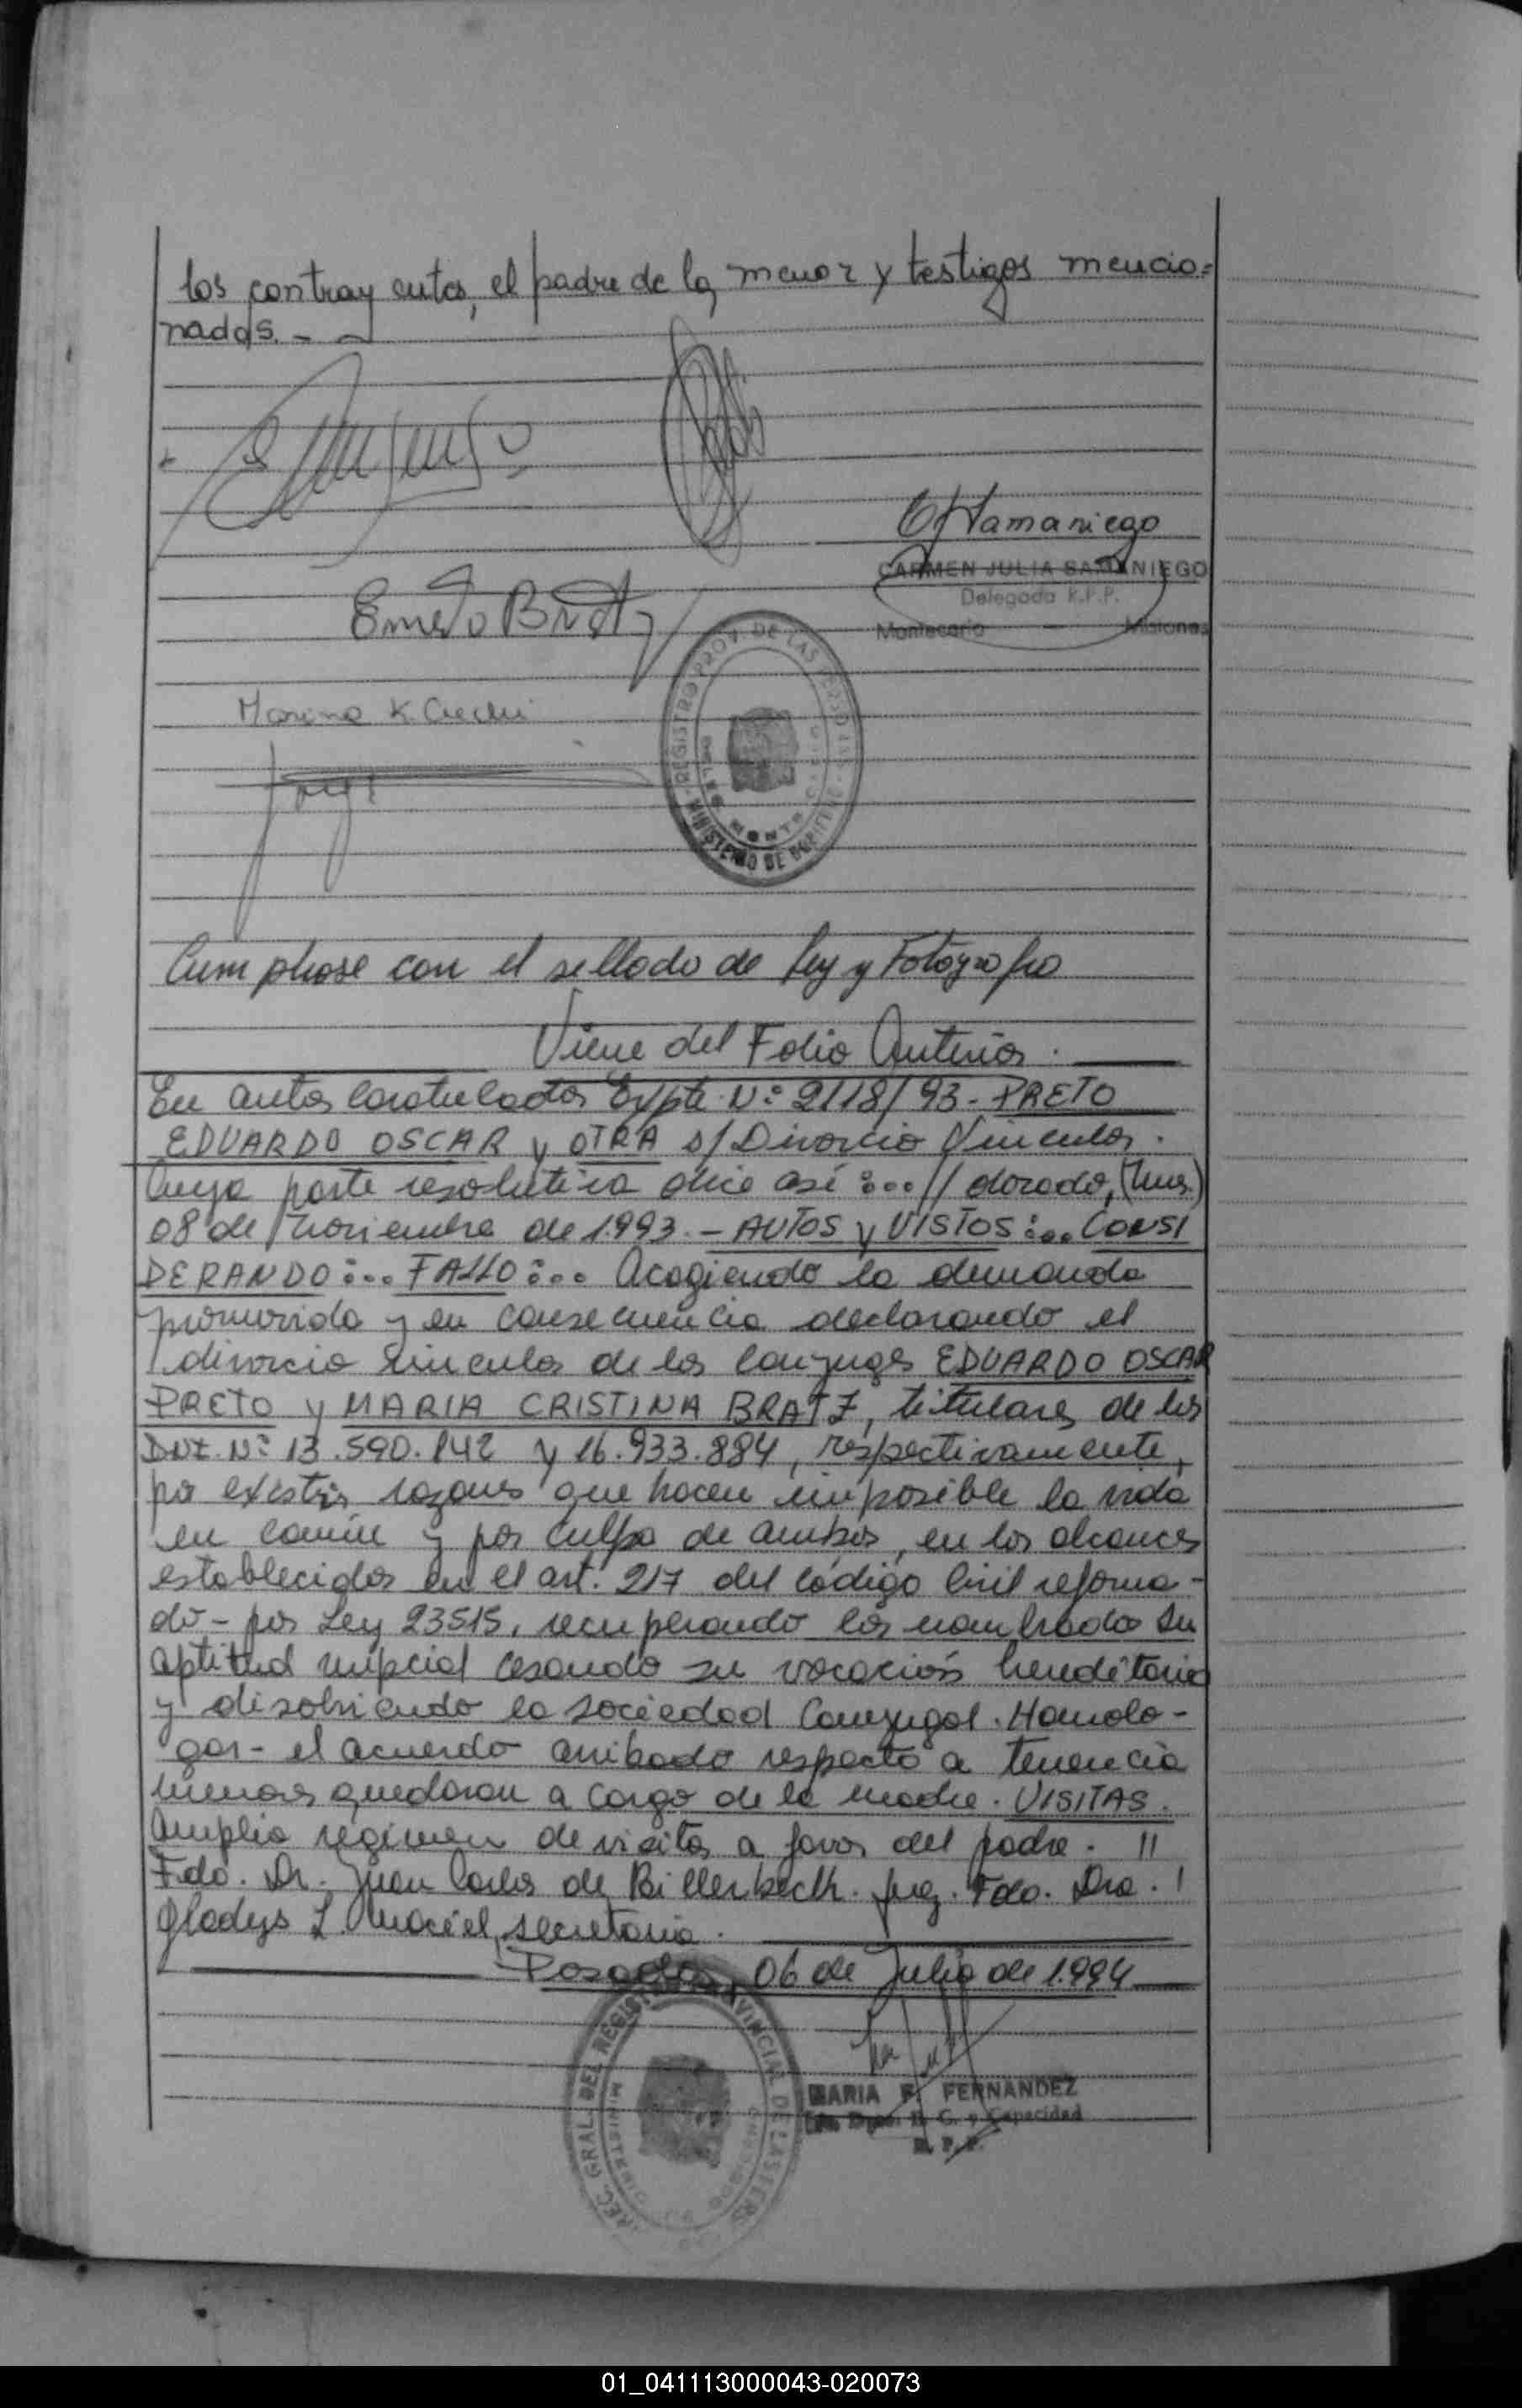 los contrayentes, el padre de la menor y testigos mencio=
nados. -
Samaniego
CARMEN JULIA SAMANIEGO
Delegada R.P.P.
Montecarlo Misiones
Ernesto Bratz
REGISTRO PROV. DE LAS PERSONAS
MINISTERIO DE GOBIERNO
Marina K
Cumplase con el sellado de Ley y Fotografia
Viene del Folio Anterior.
En autos caratulados Expte. Nº 2118/93 - PRETO
EDUARDO OSCAR y OTRA s/ Divorcio Vincular.
Cuya parte resolutiva dice así :...// dorado, (Mnes.)
08 de Noviembre de 1.993. - AUTOS y VISTOS :... CONSI
DERANDO :... FALLO :... Acogiendo la demanda
promovida y en consecuencia declarando el
divorcio vincular de los conyuges EDUARDO OSCAR
PRETO y MARIA CRISTINA BRATZ, titulares de los
DNI. Nº 13.590.142 y 16.933.884, respectivamente,
por existir razones que hacen imposible la vida
en común y por culpa de ambos, en los alcances
establecidos en el art. 217 del código Civil reforma-
do - por Ley 23515, recuperando los nombrados su
aptitud nupcial cesando su vocación hereditaria
y disolviendo la sociedad Conyugal. Homolo-
gar - el acuerdo arribado respecto a tenencia
menores quedaran a cargo de la madre. VISITAS.
Amplio regimen de visitas a favor del padre. //
Fdo. Dr. Juan Carlos de Billerbeck. Juez. Fdo. Dra. !
Gladys L. Maciel, secretaria.
Posadas, 06 de Julio de 1.994
MARIA F. FERNANDEZ
Capacidad
GRAL. DEL REGISTRO PROVINCIAL DE LAS PERS
MINISTERIO
01_041113000043-020073